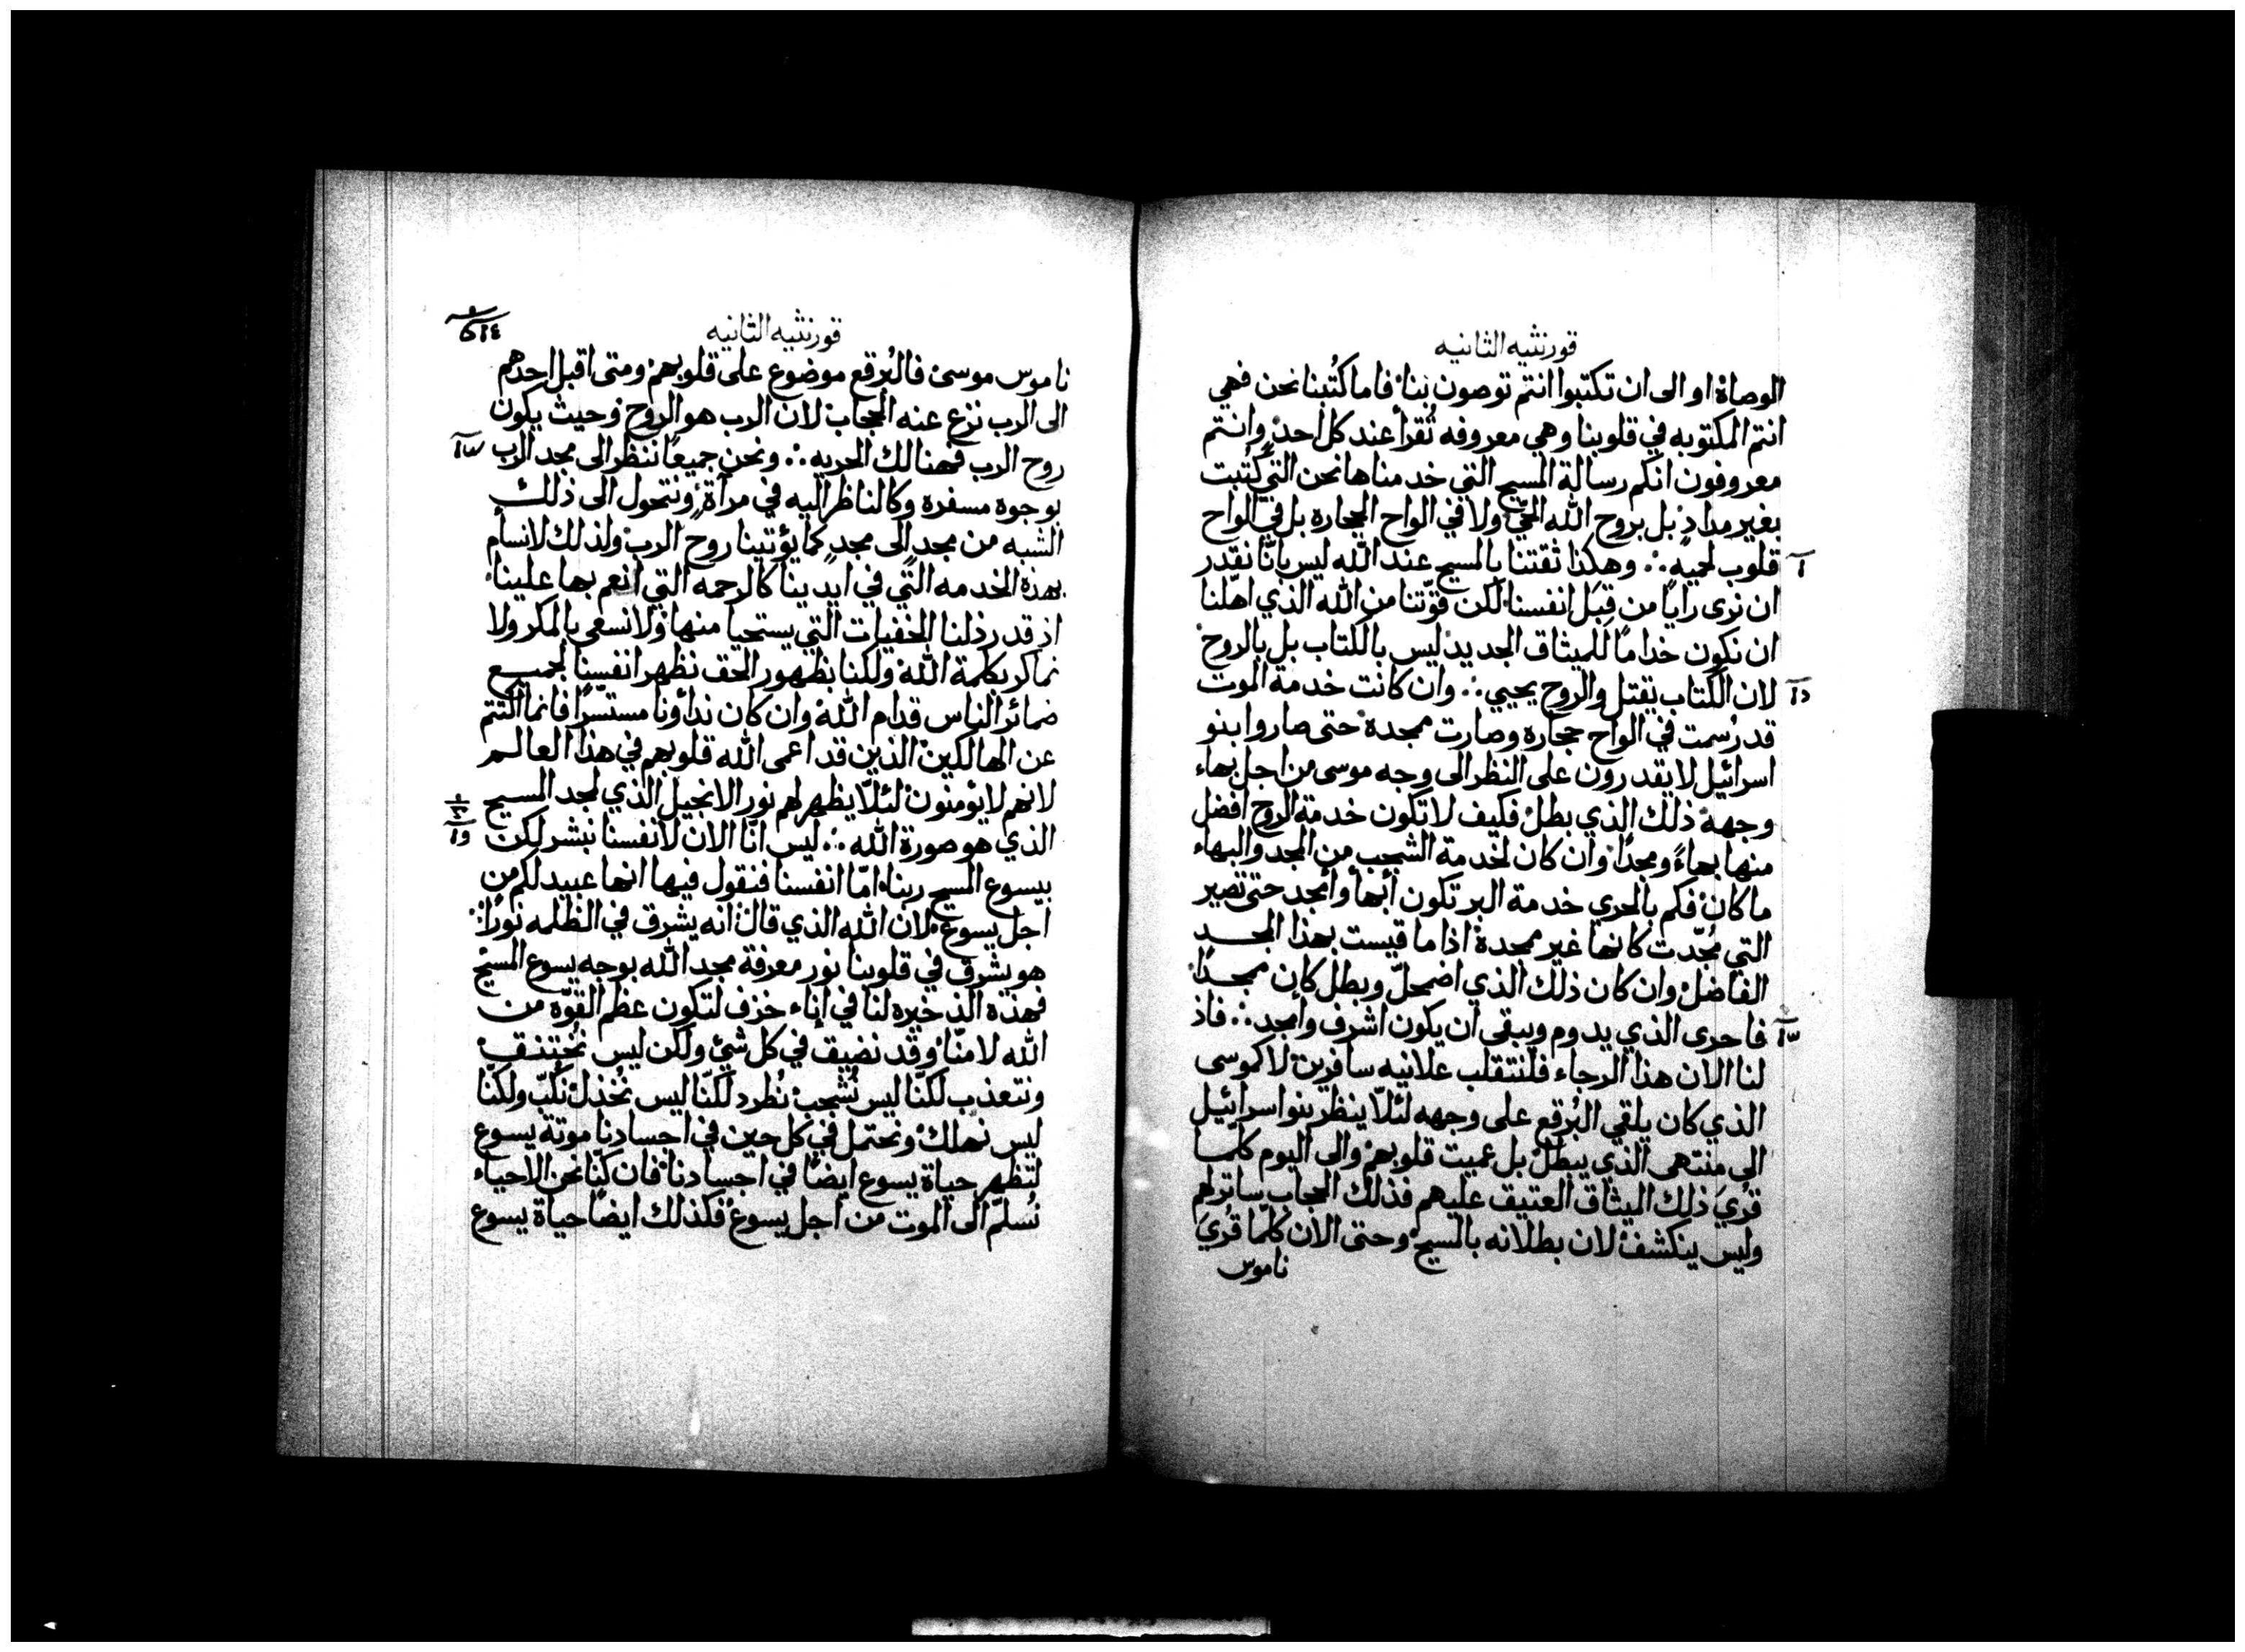 قورنثيه الثانيه
الوصاة او الى ان تكتبوا انتم توصون بنا فاما كُتبنا نحن فهي
انتم المكتوبه في قلوبنا وهي معروفه تُقرأ عند كل احد وانتم
معروفون انكم رسالة المسيح التي خدمناها نحن التي كُتبت
بغير مداد بل بروح الله الحيّ ولا في الواح الحجاره بل في الواح
قلوب لحميهٍ ∴ وهكذا ثقتنا بالمسيح عند الله ليس بانّا نقدر
ان نرى رايًا من قِبَل انفسنا لكن قوّتنا من الله الذي اهّلنا
ان نكون خدامًا للميثاق الجديد ليس بالكتاب بل بالروح
لان الكتاب يقتل والروح يحيي ∴ وان كانت خدمة الموت
قد رُسمت في الواح حجاره وصارت ممجدة حتى صاروا بنو
اسرائيل لا يقدرون على النظر الى وجه موسى من اجل بهاء
وجهه ذلك الذي بطل فكيف لا تكون خدمة الروح افضل
منها بهاءً ومجدًا وان كان لخدمة الشجب من المجد والبهاء
ما كان فكم بالحري خدمة البر تكون أبهأ وأمجد حتى تصير
التي مُجّدت كانها غير ممجدة اذا ما قيست بهذا المجد
الفاضل وان كان ذلك الذي اضمحلّ وبطل كان ممجدًا
فاحرى الذي يدوم ويبقى ان يكون اشرف وامجد ∴ فاذ
لنا الان هذا الرجاء فلنتقلب علانيه سافرين لا كموسى
الذي كان يلقي البُرقع على وجهه لئلّا ينظر بنو اسرائيل
الى منتهى الذي يبطل بل عميت قلوبهم والى اليوم كلما
قُريَ ذلك الميثاق العتيق عليهم فذلك الحجاب ساتر لهم
وليس ينكشف لان بطلانه بالمسيح وحتى الان كلّما قُريَ
ناموس
قورنثيه الثانيه
ناموس موسى فالبُرقع موضوع على قلوبهم ومتى اقبل احدهم
الى الرب نزع عنه الحجاب لان الرب هو الروح وحيث يكون
روح الرب فهنالك الحريه ∴ ونحن جميعًا ننظر الى مجد الرب
بوجوه مسفره وكالناظر اليه في مرآةٍ ونتحول الى ذلك
الشبه من مجدٍ الى مجدٍ كما يؤتينا روح الرب ولذلك لا نسأم
بهذه الخدمه التي في ايدينا كالرحمه التي انعم بها علينا
اذ قد رذلنا الخفيات التي يستحيا منها ولا نسعى بالمكر ولا
نماكر بكلمة الله ولكنا بظهور الحق نظهر انفسنا لجميع
ضمائر الناس قدام الله وان كان نداؤنا مستسرًّا فانما اكتتم
عن الهالكين الذين قد اعمى الله قلوبهم في هذا العالم
لانهم لا يؤمنون لئلّا يظهر لهم نور الانجيل الذي لمجد المسيح
الذي هو صورة الله ∴ ليس انّا الان لانفسنا نبشر لكن
بيسوع المسيح ربنا امّا انفسنا فنقول فيها انها عبيد لكم من
اجل يسوع لان الله الذي قال انه يشرق في الظلمه نورًا
هو يشرق في قلوبنا نور معرفة مجد الله بوجه يسوع المسيح
فهذه الذخيره لنا في إناء خزف لتكون عظم القوّه من
الله لا منّا وقد نضيق في كل شيٍ ولكن ليس نُختنق
ونتعذب لكنّا ليس نُشجب نُطرد لكنّا ليس نُخذل نُكبّ ولكنّا
ليس نهلك ونحتمل في كل حين في اجسادنا موتة يسوع
لتظهر حياة يسوع ايضًا في اجسادنا فان كنّا نحن الاحياء
نُسلّم الى الموت من اجل يسوع فكذلك ايضًا حياة يسوع